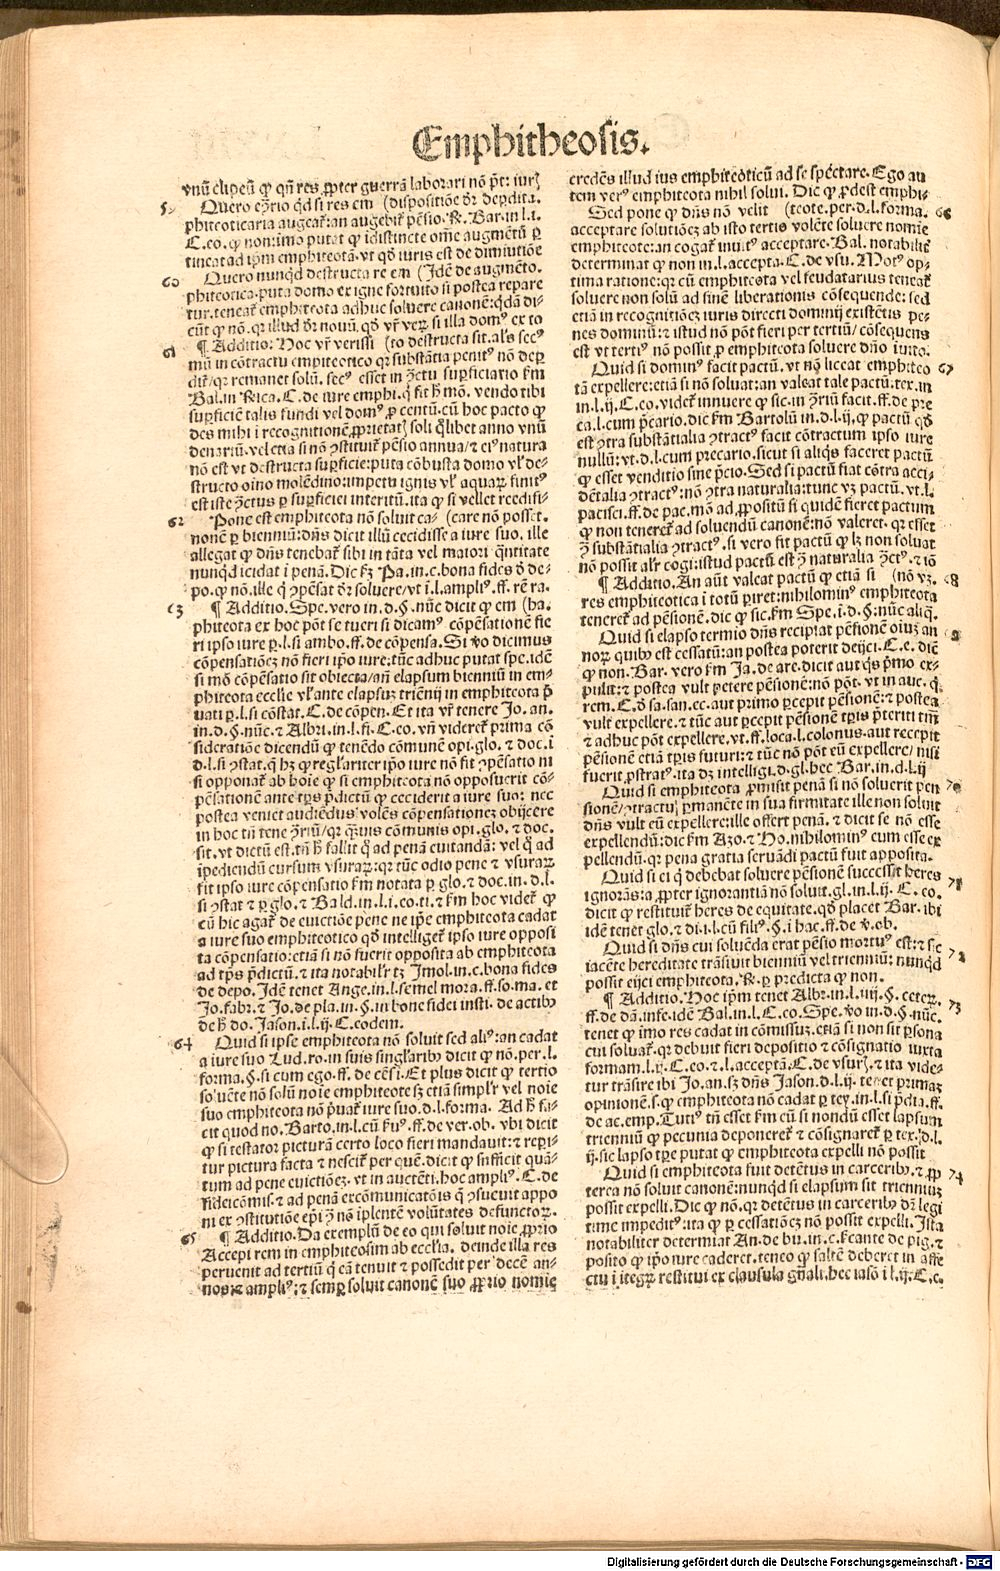 Emphitheosis.
vnū eliḡeū ꝙ qñ res ꝓpter guerrā laborari nō p̄t: iurꝫ
5. Quero eꝯrio qd si res em (dispositiōe d̄r deꝑdita.
phiteoticaria augeat̃: an augebit̃ pēsio. R. Bar. in l. i.
C. eo. ꝙ non: imo putat ꝙ idistincte om̄e augmētū ꝑ
tineat ad ip̄m emphiteotā. vt qd̄ iuris est de dimiutiōe
60 Quero nunqd destructa re em (Idē de augmēto.
phiteotica. puta domo ex igne fortuito si postea repare
tur. teneat̃ emphiteota adhuc soluere canonē: qdā di-
cūt ꝙ nō. qr illud d̄r nouū. qd̄ vr̄ veꝝ si illa domꝰ ex to
61 ¶ Additio: Hoc vr̄ verissi (to destructa sit. als secꝰ
mū in cōtractu empiteotico qr substātia penitꝰ nō deꝑ
dit̃/ qr remanet solū. secꝰ esset in ꝯctu suꝑficiario ẜm
Bal. in Rica. C. de iure emphi. q̄ fit h̄ mō. vendo tibi
suꝑficiē talis fundi vel domꝰ ꝓ centū. cū hoc pacto ꝙ
des mihi i recognitionē ꝓprietatꝫ soli qͣlibet anno vnū
denariū. vel etia si nō ꝯstituit̃ pēsio annua/ & eiꝰ natura
nō est vt destructa suꝑficie: puta cōbusta domo vl̓ de-
structo oīno molēdino: impetu ignis vl̓ aquaꝝ finitꝰ
est iste ꝯctus ꝑ suꝑficiei interitū. ita ꝙ si vellet reedifi-
62 Pone est emphiteota nō soluit ca- (care nō posset.
nonē ꝑ bienniū: dn̄s dicit illū cecidisse a iure suo. ille
allegat ꝙ dn̄s tenebat̃ sibi in tāta vel maiori qn̄titate
nunqd icidat i penā. Dic ẜꝫ Pa. in. c. bona fides d̄ de-
po. ꝙ nō. ille q̄ ꝯpēsat d̄r soluere/ vt i. l. ampliꝰ. ff. rē ra.
63 ¶ Additio. Spe. vero in. d. §. nūc dicit ꝙ em (ha.
phiteota ex hoc pōt se tueri si dicamꝰ cōpēsationē fie
ri ipso iure ꝑ. l. si ambo. ff. de cōpensa. Si v̄o dicimus
cōpēsationeꝫ nō fieri ip̄o iure: tūc adhuc putat spe. idē
si mō cōpēsatio sit obiecta/ an̄ elapsum bienniū in em-
phiteota ecclīe vl̓ ante elapsuꝫ triēnij in emphiteota p̄
uati ꝑ. l. si cōstat. C. de cōpen. Et ita vr̄ tenere Jo. an.
in. d. §. nūc. & Albri. in. l. fi. C. eo. vn̄ videret̃ prima cō
sideratiōe dicendū ꝙ tenēdo cōmunē opi. glo. & doc. i
d. l. si ꝯstat. q̄ hꝫ ꝙ regl̓ariter ip̄o iure nō fit ꝯpēsatio ni
si opponat̃ ab hoīe ꝙ si emphiteota nō opposuerit cō-
pēsationē ante tꝑs p̄dictū ꝙ ceciderit a iure suo: nec
postea veniet audiēdus volēs cōpēsationeꝫ obijcere
in hoc tn̄ tene ꝯriū/ qr q̄uis cōmunis opi. glo. & doc.
sit. vt dictū est. tn̄ h̄ fallit q̄ ad penā euitandā: vel q̄ ad
īpediendū cursum vsuraꝝ: qr tūc odio pene & vsuraꝝ
fit ipso iure cōpēsatio ẜm notata ꝑ glo. & doc. in. d. l.
si ꝯstat & ꝑ glo. & Bald. in. l. i. eo. ti. & ẜm hoc videt̃ ꝙ
cū hic agat̃ de euictiōe pene ne ip̄e emphiteota cadat
a iure suo emphiteotico qd̄ intelliget̃ ipso iure opposi
ta cōpēsatio: etiā si nō fuerit opposita ab emphiteota
ad tꝑs p̄dictū. & ita notabil̓r tꝫ Imol. in. c. bona fides
de depo. Idē tenet Ange. in. l. semel mora. ff. so. ma. et
Jo. fabr. & Jo. de pla. in. §. in bone fidei insti. de actibꝰ
de h̄ do. Jason. i. l. ij. C. eodem.
64 Quid si ipse emphiteota nō soluit sed aliꝰ: an cadat
a iure suo Lud. ro. in suis singl̓aribꝰ dicit ꝙ nō. per. l.
forma. §. si cum ego. ff. de cēsi. Et plus dicit ꝙ tertio
soluēte nō solū noīe emphiteote sꝫ etiā simpl̓r vel noīe
suo emphiteota nō p̄uat̃ iure suo. d. l. forma. Ad h̄ fa-
cit quod no. Barto. in. l. cū ẜuꝰ. ff. de ver. ob. vbi dicit
ꝙ si testator picturā certo loco fieri mandauit: & reꝑi-
tur pictura facta & nescit̃ per quē. dicit ꝙ sufficit quā-
tum ad pene euictiōeꝫ. vt in auctēti. hoc ampliꝰ. C. de
fideicōmis. & ad penā excōmunicatōis q̄ ꝯsueuit appo
ni ex ꝯstitutiōe epī ꝯ nō iplentē volūtates defunctoꝝ.
65 ¶ Additio. Da exemplū de eo qui soluit noīe ꝓprio
Accepi rem in emphiteosim ab ecclīa. deinde illa res
peruenit ad tertiū q̄ eā tenuit & possedit per decē an-
nos & ampliꝰ: & semꝑ soluit canonē suo ꝓprio nomīe
credēs illud ius emphiteōticū ad se spectare. Ego au
tem verꝰ emphiteota nihil solui. Dic ꝙ ꝓdest emphi-
Sed pone ꝙ dn̄s nō velit (teote. per. d. l. forma. 66
acceptare solutiōeꝫ ab isto tertio volēte soluere nomīe
emphiteote: an cogat̃ inuitꝰ acceptare. Bal. notabilit̃
determinat ꝙ non in. l. accepta. C. de vsu. Motꝰ op-
tima ratione: qr cū emphiteota vel feudatarius teneat̃
soluere non solū ad finē liberationis cōsequende: sed
etiā in recognitiōeꝫ iuris directi dominij existētis pe-
nes dominū: & istud nō pōt fieri per tertiū/ cōsequens
est vt tertiꝰ nō possit ꝓ emphiteota soluere dn̄o iuito.
Quid si dominꝰ facit pactū. vt nō liceat emphiteo 67
tā expellere: etiā si nō soluat: an valeat tale pactū: tex. in
in. l. ij. C. eo. videt̃ innuere ꝙ sic. in ꝯriū facit. ff. de pre
ca. l. cum p̄cario. dic ẜm Bartolū in. d. l. ij. ꝙ pactū qd̄
est ꝯtra substātialia ꝯtractꝰ facit cōtractum ipso iure
nullū: vt. d. l. cum precario. sicut si aliqs faceret pactū
ꝙ esset venditio sine p̄cio. Sed si pactū fiat cōtra acci-
dētalia ꝯtractꝰ: nō ꝯtra naturalia: tunc vꝫ pactū. vt. l.
pacisci. ff. de pac. mō ad ꝓpositū si quidē fieret pactum
ꝙ non teneret̃ ad soluendū canonē: nō valeret. qr esset
ꝯ substātialia ꝯtractꝰ. si vero fit pactū ꝙ lꝫ non soluat
nō possit al̓r cogi: istud pactū est ꝯ naturalia ꝯctꝰ. & iō
¶ Additio. An aūt valeat pactū ꝙ etiā si (nō vꝫ. 68
res emphiteotica i totū ꝑiret: nihilominꝰ emphiteota
teneret̃ ad pēsionē. dic ꝙ sic. ẜm Spe. i. d. §. nūc aliq.
Quid si elapso termīo dn̄s recipiat pēsionē oīuꝫ an 69
noꝝ quibꝰ est cessatū: an postea poterit deijci. C. e. diē
ꝙ non. Bar. vero ẜm Ja. de are. dicit aut qs p̄mo ex-
pulit: & postea vult petere pēsionē: nō pōt. vt in auc. q̄
rem. C. d̄ sa. san. ec. aut primo ꝑcepit pēsionē: & postea
vult expellere. & tūc aut ꝑcepit pēsionē tꝑis p̄teriti tm̄
& adhuc pōt expellere. vt. ff. loca. l. colonus. aut recepit
pēsionē etiā tꝑis futuri: & tūc nō pōt eū expellere/ nisi
fuerit ꝓstratꝰ. ita dꝫ intelligi. d. gl. hec Bar. in. d. l. ij
Quid si emphiteota ꝓmisit penā si nō soluerit pen 70
sionē/ ꝯtractu ꝑmanēte in sua firmitate ille non soluit
dn̄s vult eū expellere: ille offert penā. & dicit se nō esse
expellendū: dic ẜm Azo. & Ho. nihilominꝰ eum esse ex
pellendū. qr pena gratia seruādi pactū fuit apposita.
Quid si ei q̄ debebat soluere pēsionē successit heres 71
ignorās: a ꝓpter ignorantiā nō soluit. gl. in. l. ij. C. eo.
dicit ꝙ restituit̃ heres de equitate. qd̄ placet Bar. ibi
idē tenet glo. & di. i. l. cū filiꝰ. §. i hac. ff. de v̄. ob.
Quid si dn̄s cui soluēda erat pēsio mortuꝰ est: & sic 72
iacēte hereditate trāsiuit bienniū vel trienniū: nunqd
possit eijci emphiteota. R. ꝑ predicta ꝙ non.
¶ Additio. Hoc ip̄m tenet Albr. in. l. iiij. §. ceteꝝ. 73
ff. de dā. infe. idē Bal. in. l. C. eo. Spe. v̄o in. d. §. nūc.
tenet ꝙ imo res cadat in cōmissuꝫ. etiā si non sit ꝑsona
cui soluat̃. qr debuit fieri depositio & cōsignatio iuxta
formam. l. ij. C. eo. & l. acceptā. C. de vsurꝫ. & ita vide-
tur trāsire ibi Jo. an. sꝫ dn̄s Jason. d. l. ij. tenet primaꝫ
opinionē. s. ꝙ emphiteota nō cadat ꝑ tex. in. l. si p̄dia. ff.
de ac. emp. Tutiꝰ tn̄ esset ẜm eū si nondū esset lapsum
trienniū ꝙ pecunia deponeret̃ & cōsignaret̃ ꝑ tex. d. l.
ij. sic lapso tꝑe putat ꝙ emphiteota expelli nō possit
Quid si emphiteota fuit detētus in carceribꝰ. & ꝓp 74
terea nō soluit canonē: nunqd si elapsum sit trienniuꝫ
possit expelli. Dic ꝙ nō. qr detētus in carceribꝰ dr̄ legi
time impeditꝰ: ita ꝙ ꝑ cessatiōeꝫ nō possit expelli. Ista
notabiliter determiat An. de bu. in. c. ẜcante de pig. &
posito ꝙ ip̄o iure caderet. teneo ꝙ saltē deberet in affe
ctu i integꝝ restitui ex clausula gn̄ali. hec iasō i l. ij. C. e.
Digitalisierung gefördert durch die Deutsche Forschungsgemeinschaft - DFG